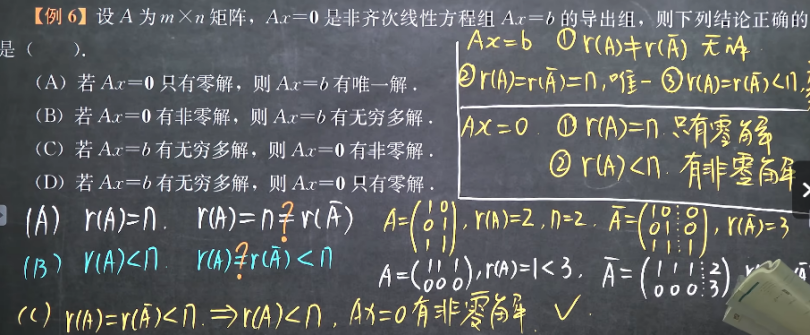 【例 6】设 A 为 m×n 矩阵，Ax=0 是非齐次线性方程组 Ax=b 的导出组，则下列结论正确的
是（　　）.
(A) 若 Ax=0 只有零解，则 Ax=b 有唯一解.
(B) 若 Ax=0 有非零解，则 Ax=b 有无穷多解.
(C) 若 Ax=b 有无穷多解，则 Ax=0 有非零解.
(D) 若 Ax=b 有无穷多解，则 Ax=0 只有零解.
Ax=b ① r(A)≠r(Ā) 无解
② r(A)=r(Ā)=n, 唯一 ③ r(A)=r(Ā)<n,
AX=0 ① r(A)=n 只有零解
② r(A)<n. 有非零解
(A) r(A)=n. r(A)=n≟r(Ā) A=(1 0; 0 1; 1 1), r(A)=2, n=2. Ā=(1 0 0; 0 1 0; 1 1 1), r(Ā)=3
(B) r(A)<n. r(A)≟r(Ā)<n A=(1 1 1; 0 0 0), r(A)=1<3, Ā=(1 1 1 2; 0 0 0 3)
(C) r(A)=r(Ā)<n. ⇒r(A)<n, AX=0 有非零解 ✓